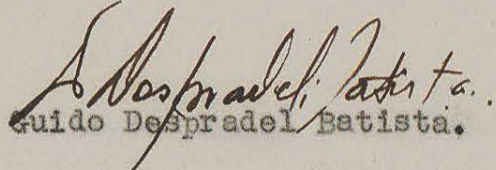 G Despradel Batista.
Guido Despradel Batista.